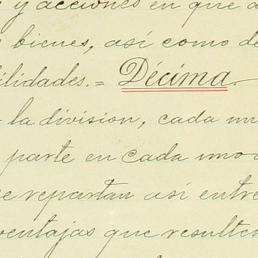 y acciones en que a
bienes, así como de
ilidades.= Décima.
la division, cada un
parte en cada uno
se repartan así entre
ventajas que resulten